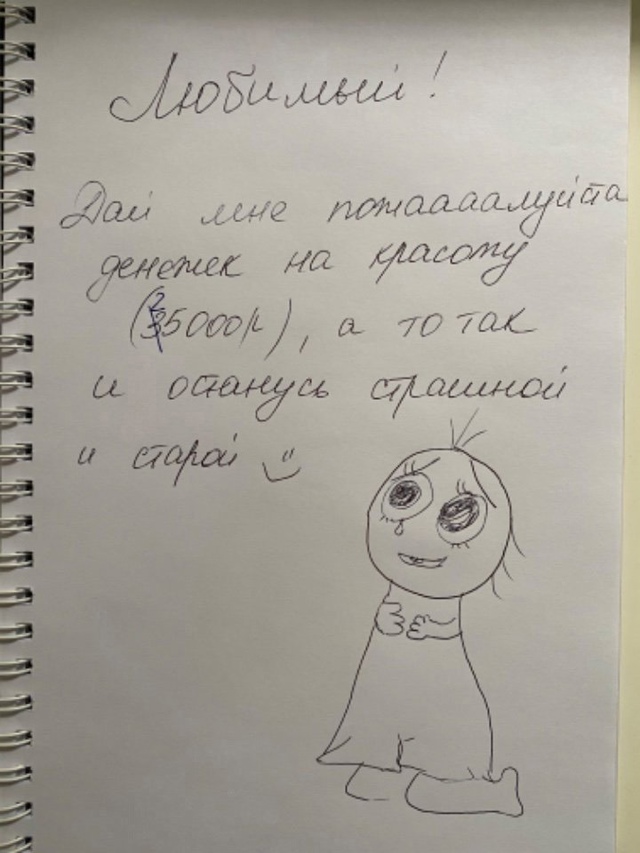 Любимый!
Дай мне пожааааалуйста
денежек на красоту
(25000р), а то так
и останусь страшной
и старой